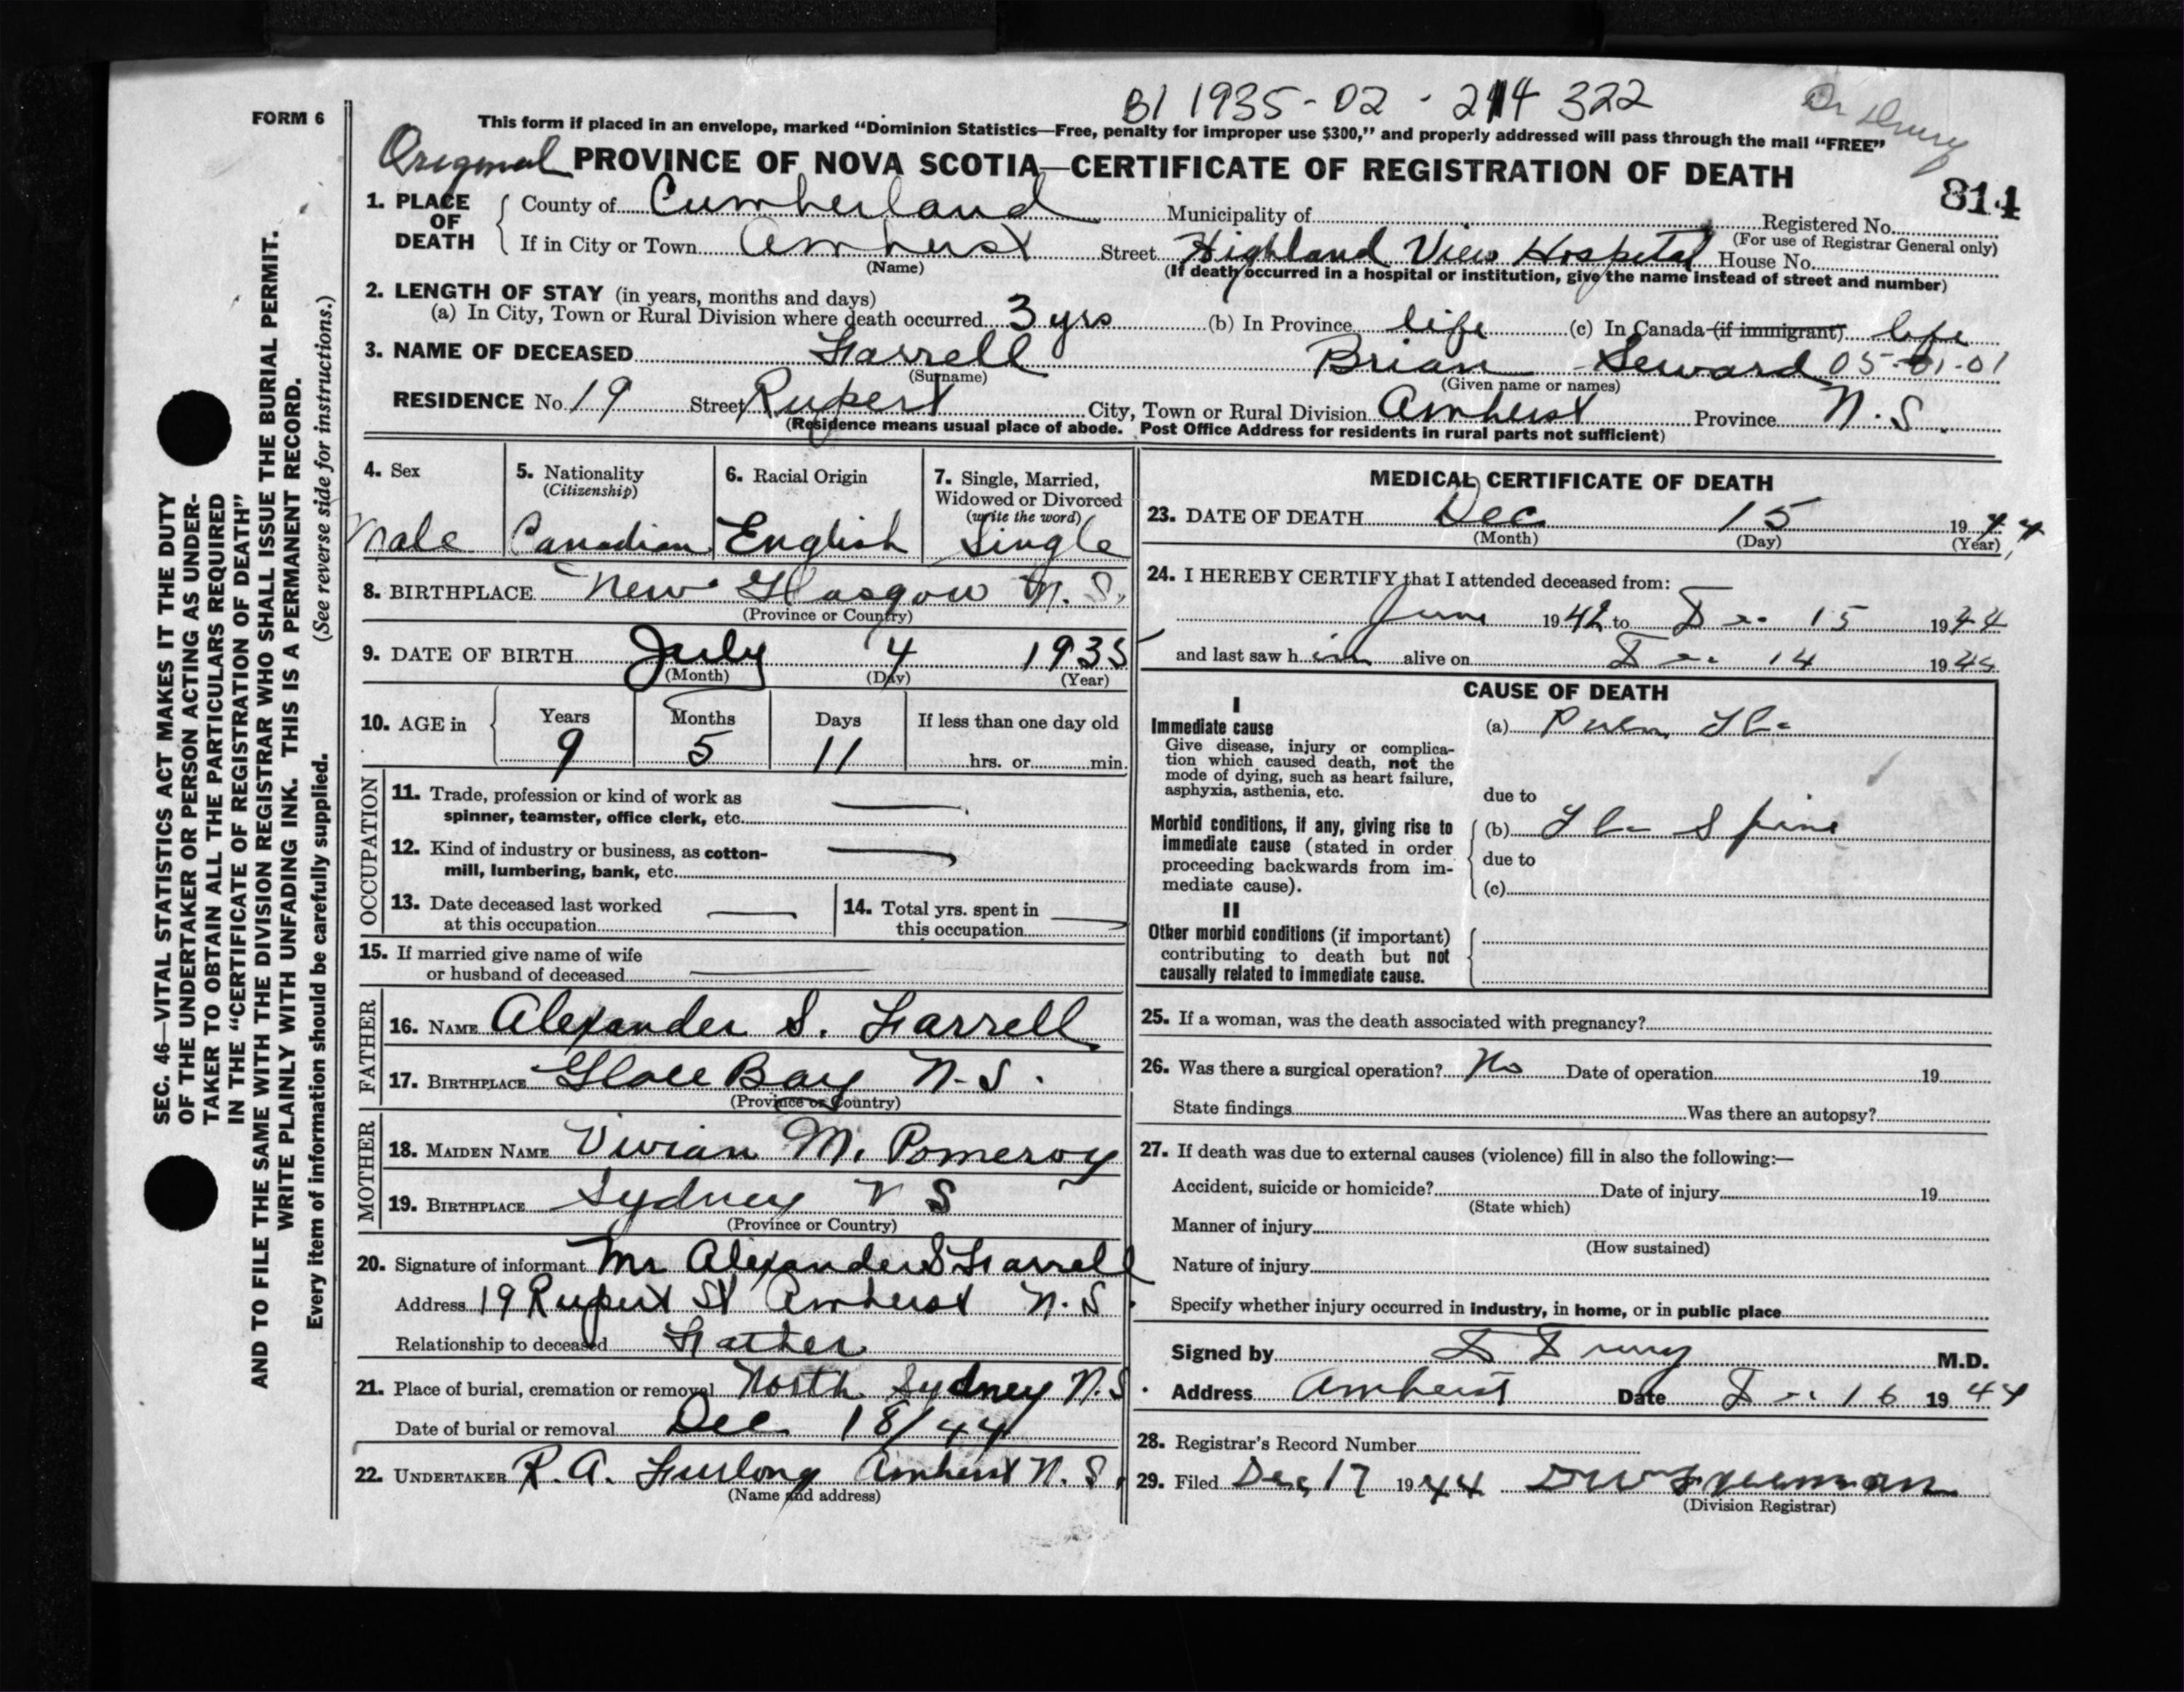 BI 1935-02-214322
Dr Drury
FORM 6
This form if placed in an envelope, marked "Dominion Statistics—Free, penalty for improper use $300," and properly addressed will pass through the mail "FREE"
Original PROVINCE OF NOVA SCOTIA—CERTIFICATE OF REGISTRATION OF DEATH
814
1. PLACE OF DEATH County of Cumberland Municipality of Registered No.
(For use of Registrar General only)
If in City or Town Amherst Street Highland View Hospital House No.
(Name) (If death occurred in a hospital or institution, give the name instead of street and number)
2. LENGTH OF STAY (in years, months and days)
(a) In City, Town or Rural Division where death occurred 3 yrs (b) In Province life (c) In Canada (if immigrant) life
3. NAME OF DECEASED Farrell Brian Seward 05-01-01
(Surname) (Given name or names)
RESIDENCE No. 19 Street Rupert City, Town or Rural Division Amherst Province N.S.
(Residence means usual place of abode. Post Office Address for residents in rural parts not sufficient)
4. Sex 5. Nationality (Citizenship) 6. Racial Origin 7. Single, Married, Widowed or Divorced (write the word)
Male Canadian English Single
8. BIRTHPLACE New Glasgow N.S.
(Province or Country)
9. DATE OF BIRTH July 4 1935
(Month) (Day) (Year)
10. AGE in Years Months Days If less than one day old
9 5 11 hrs. or min.
OCCUPATION
11. Trade, profession or kind of work as
spinner, teamster, office clerk, etc.
12. Kind of industry or business, as cotton-
mill, lumbering, bank, etc.
13. Date deceased last worked
at this occupation
14. Total yrs. spent in
this occupation
15. If married give name of wife
or husband of deceased
FATHER
16. NAME Alexander S. Farrell
17. BIRTHPLACE Glace Bay N.S.
(Province or Country)
MOTHER
18. MAIDEN NAME Vivian M. Pomeroy
19. BIRTHPLACE Sydney N S
(Province or Country)
20. Signature of informant Mr Alexander S Farrell
Address 19 Rupert St Amherst N.S.
Relationship to deceased Father
21. Place of burial, cremation or removal North Sydney N.S.
Date of burial or removal Dec 18/44
22. UNDERTAKER R. A. Furlong Amherst N.S.
(Name and address)
MEDICAL CERTIFICATE OF DEATH
23. DATE OF DEATH Dec 15 1944
(Month) (Day) (Year)
24. I HEREBY CERTIFY that I attended deceased from:
June 1942 to Dec 15 1944
and last saw him alive on Dec 14 1944
CAUSE OF DEATH
I
Immediate cause
Give disease, injury or complica-
tion which caused death, not the
mode of dying, such as heart failure,
asphyxia, asthenia, etc.
(a) Pulm Tbc
due to
Morbid conditions, if any, giving rise to
immediate cause (stated in order
proceeding backwards from im-
mediate cause).
(b) Tbc Spine
due to
(c)
II
Other morbid conditions (if important)
contributing to death but not
causally related to immediate cause.
25. If a woman, was the death associated with pregnancy?
26. Was there a surgical operation? No Date of operation 19
State findings Was there an autopsy?
27. If death was due to external causes (violence) fill in also the following:—
Accident, suicide or homicide? Date of injury 19
(State which)
Manner of injury
(How sustained)
Nature of injury
Specify whether injury occurred in industry, in home, or in public place
Signed by D Drury M.D.
Address Amherst Date Dec 16 1944
28. Registrar's Record Number
29. Filed Dec 17 1944
(Division Registrar)
SEC. 46—VITAL STATISTICS ACT MAKES IT THE DUTY
OF THE UNDERTAKER OR PERSON ACTING AS UNDER-
TAKER TO OBTAIN ALL THE PARTICULARS REQUIRED
IN THE "CERTIFICATE OF REGISTRATION OF DEATH"
AND TO FILE THE SAME WITH THE DIVISION REGISTRAR WHO SHALL ISSUE THE BURIAL PERMIT.
WRITE PLAINLY WITH UNFADING INK. THIS IS A PERMANENT RECORD.
Every item of information should be carefully supplied. (See reverse side for instructions.)